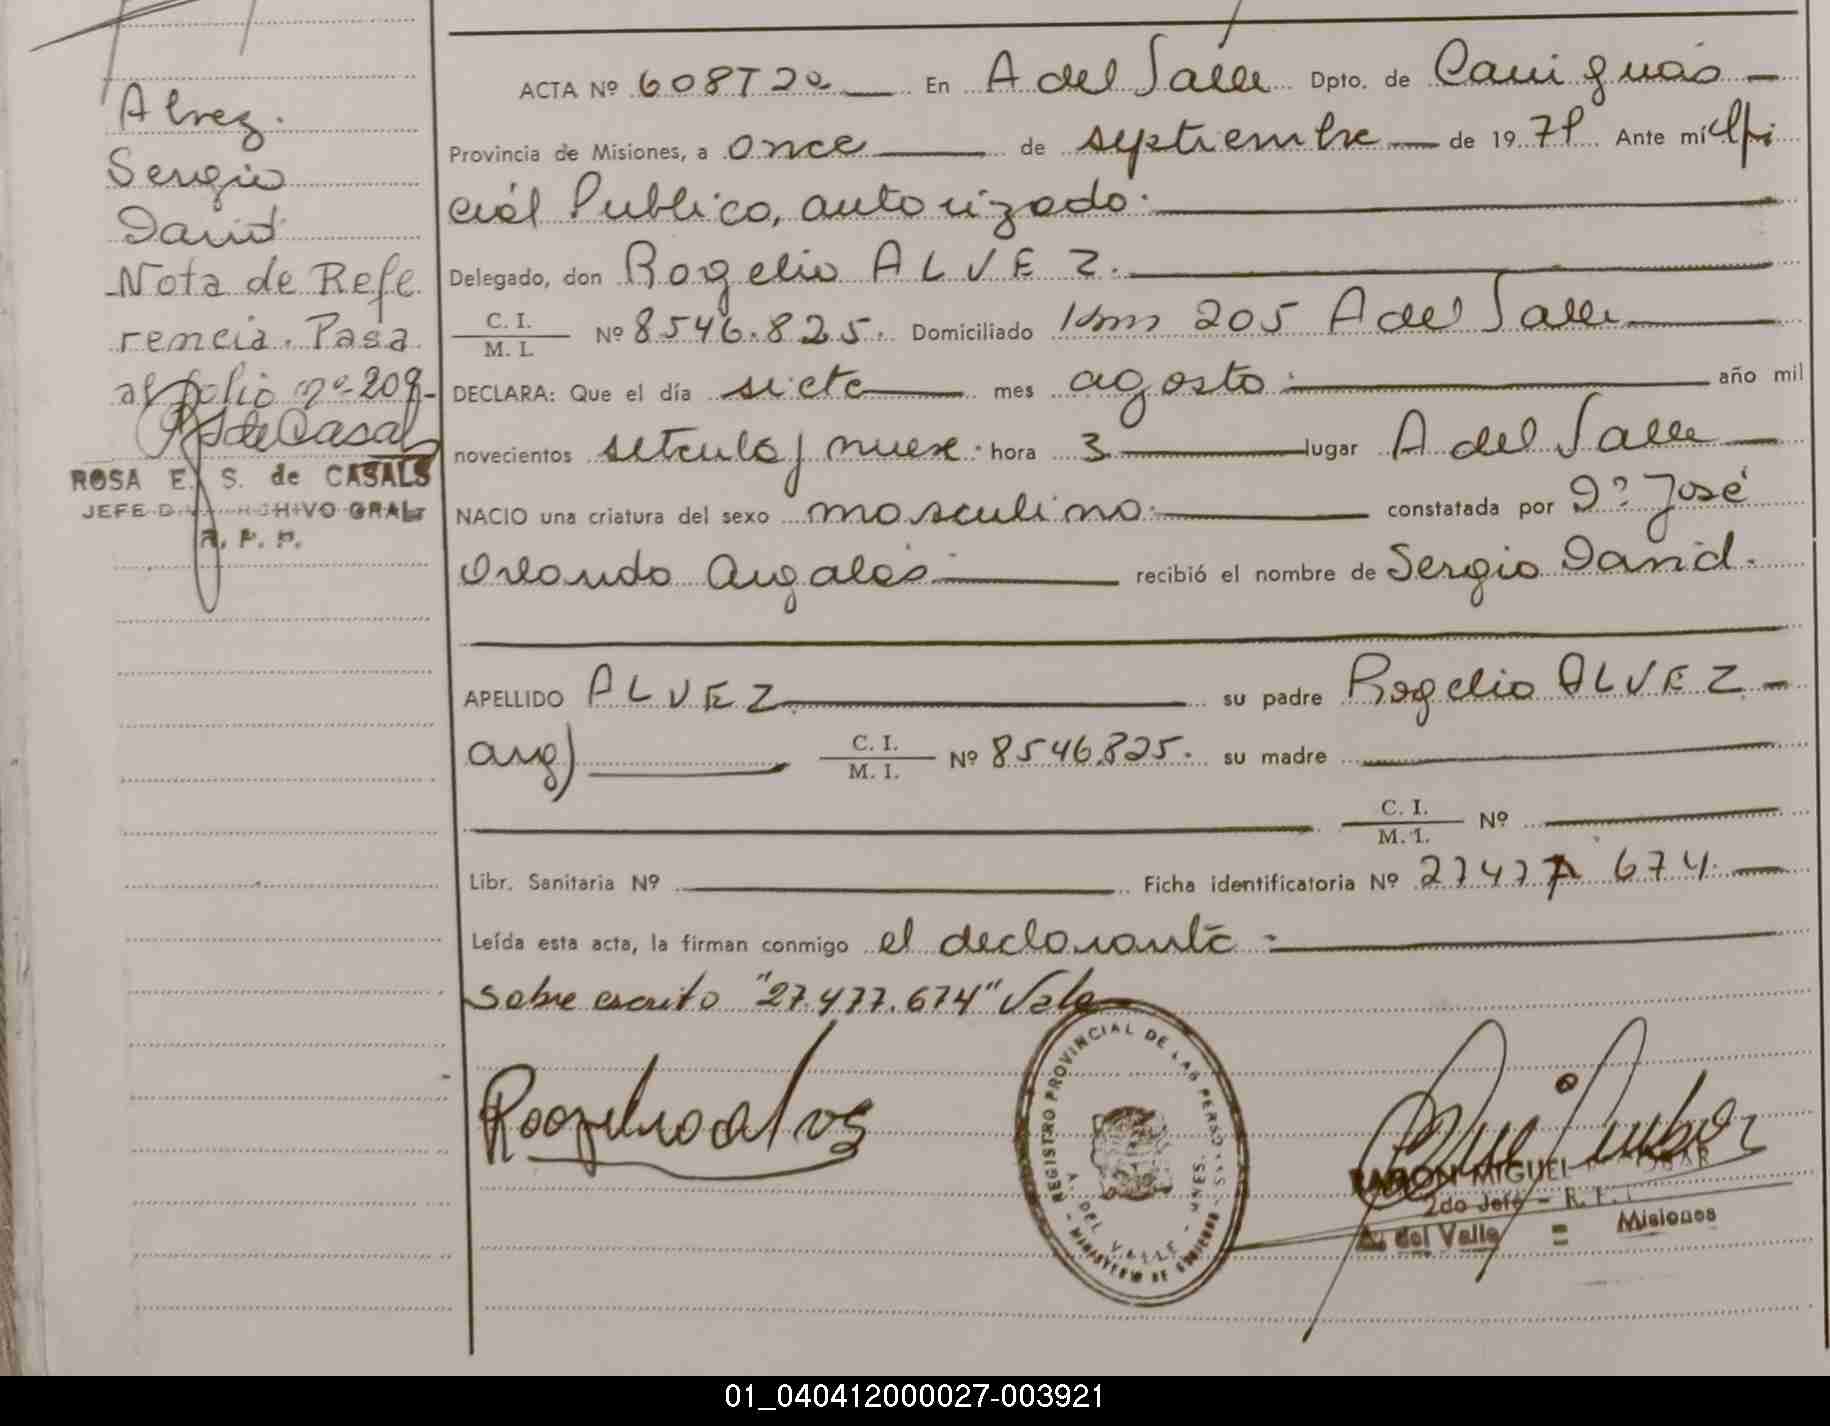 Alvez.
Sergio
David
Nota de Refe
rencia. Pasa
al folio nº 209-
ROSA E. S. de CASALS
JEFE ARCHIVO GRAL
R. P. P.
ACTA Nº 608T2º En A del Valle Dpto. de Cainguás
Provincia de Misiones, a once de septiembre de 1979 Ante mí Ofi
cial Publico, autorizado.
Delegado, don Rogelio ALVEZ.
C. I. / M. I. Nº 8546.825. Domiciliado Km 205 A del Valle
DECLARA: Que el día siete mes agosto. año mil
novecientos setenta y nueve. hora 3 lugar A del Valle
NACIO una criatura del sexo masculino. constatada por Dº José
Orlando Argalas recibió el nombre de Sergio David.
APELLIDO ALVEZ su padre Rogelio ALVEZ
arg) C. I. / M. I. Nº 8546.825. su madre
C. I. / M. I. Nº
Libr. Sanitaria Nº Ficha identificatoria Nº 27477 674.
Leída esta acta, la firman conmigo el declarante
Sobre escrito "27.477.674" Vale
Rogelio alvez
REGISTRO PROVINCIAL DE LAS PERSONAS - MNES.
A. DEL VALLE
MINISTERIO DE GOBIERNO
RAMON MIGUEL
2do Jefe - R. P.
A. del Valle = Misiones
01_040412000027-003921